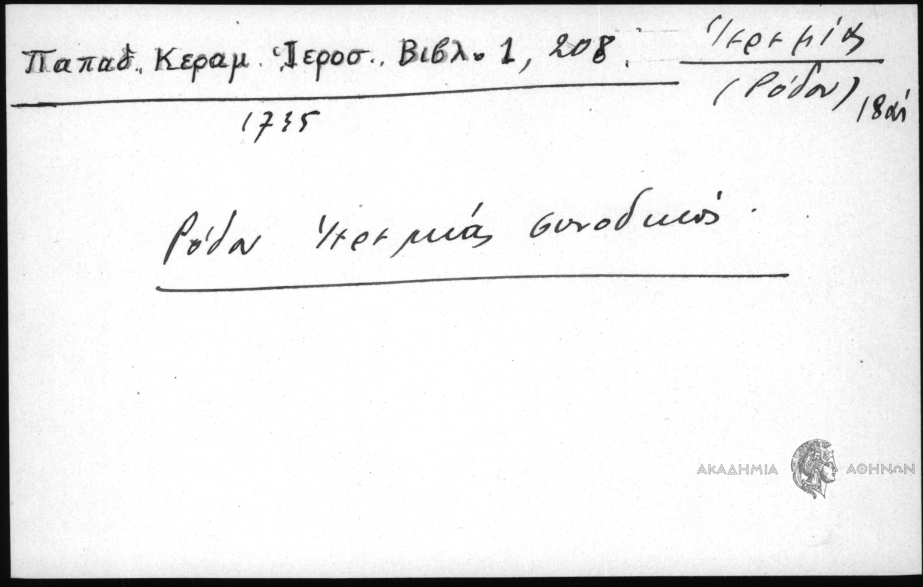 Παπαδ. Κεραμ. Ἱεροσ. Βιβλ. 1, 208.
Ἱερεμίας
(Ρόδου)
18 αἰ
1735
Ρόδου Ἱερεμίας συνοδικός.
ΑΚΑΔΗΜΙΑ ΑΘΗΝΩΝ